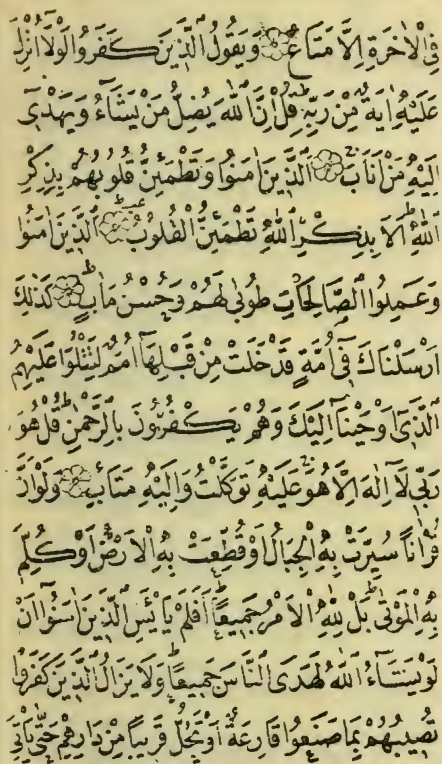 فِى الْاٰخِرَةِ اِلَّا مَتَاعٌ ۞ وَيَقُولُ الَّذِينَ كَفَرُوا لَوْلَا اُنْزِلَ
عَلَيْهِ اٰيَةٌ مِنْ رَبِّهِ قُلْ اِنَّ اللّٰهَ يُضِلُّ مَنْ يَشَاءُ وَيَهْدِى
اِلَيْهِ مَنْ اَنَابَ ۞ الَّذِينَ اٰمَنُوا وَتَطْمَئِنُّ قُلُوبُهُمْ بِذِكْرِ
اللّٰهِ اَلَا بِذِكْرِ اللّٰهِ تَطْمَئِنُّ الْقُلُوبُ ۞ الَّذِينَ اٰمَنُوا
وَعَمِلُوا الصَّالِحَاتِ طُوبٰى لَهُمْ وَحُسْنُ مَاٰبٍ ۞ كَذٰلِكَ
اَرْسَلْنَاكَ فِى اُمَّةٍ قَدْ خَلَتْ مِنْ قَبْلِهَا اُمَمٌ لِتَتْلُوَا عَلَيْهِمُ
الَّذِى اَوْحَيْنَا اِلَيْكَ وَهُمْ يَكْفُرُونَ بِالرَّحْمٰنِ قُلْ هُوَ
رَبِّى لَا اِلٰهَ اِلَّا هُوَ عَلَيْهِ تَوَكَّلْتُ وَاِلَيْهِ مَتَابِ ۞ وَلَوْ اَنَّ
قُرْاٰنًا سُيِّرَتْ بِهِ الْجِبَالُ اَوْ قُطِّعَتْ بِهِ الْاَرْضُ اَوْ كُلِّمَ
بِهِ الْمَوْتٰى بَلْ لِلّٰهِ الْاَمْرُ جَمِيعًا اَفَلَمْ يَايْـَٔسِ الَّذِينَ اٰمَنُوا اَنْ
لَوْ يَشَاءُ اللّٰهُ لَهَدَى النَّاسَ جَمِيعًا وَلَا يَزَالُ الَّذِينَ كَفَرُوا
تُصِيبُهُمْ بِمَا صَنَعُوا قَارِعَةٌ اَوْ تَحُلُّ قَرِيبًا مِنْ دَارِهِمْ حَتّٰى يَاْتِىَ